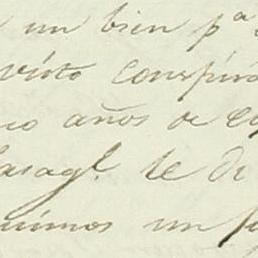 un bien p.ª
visto conspira
años de e
asag.l te di
uimos un